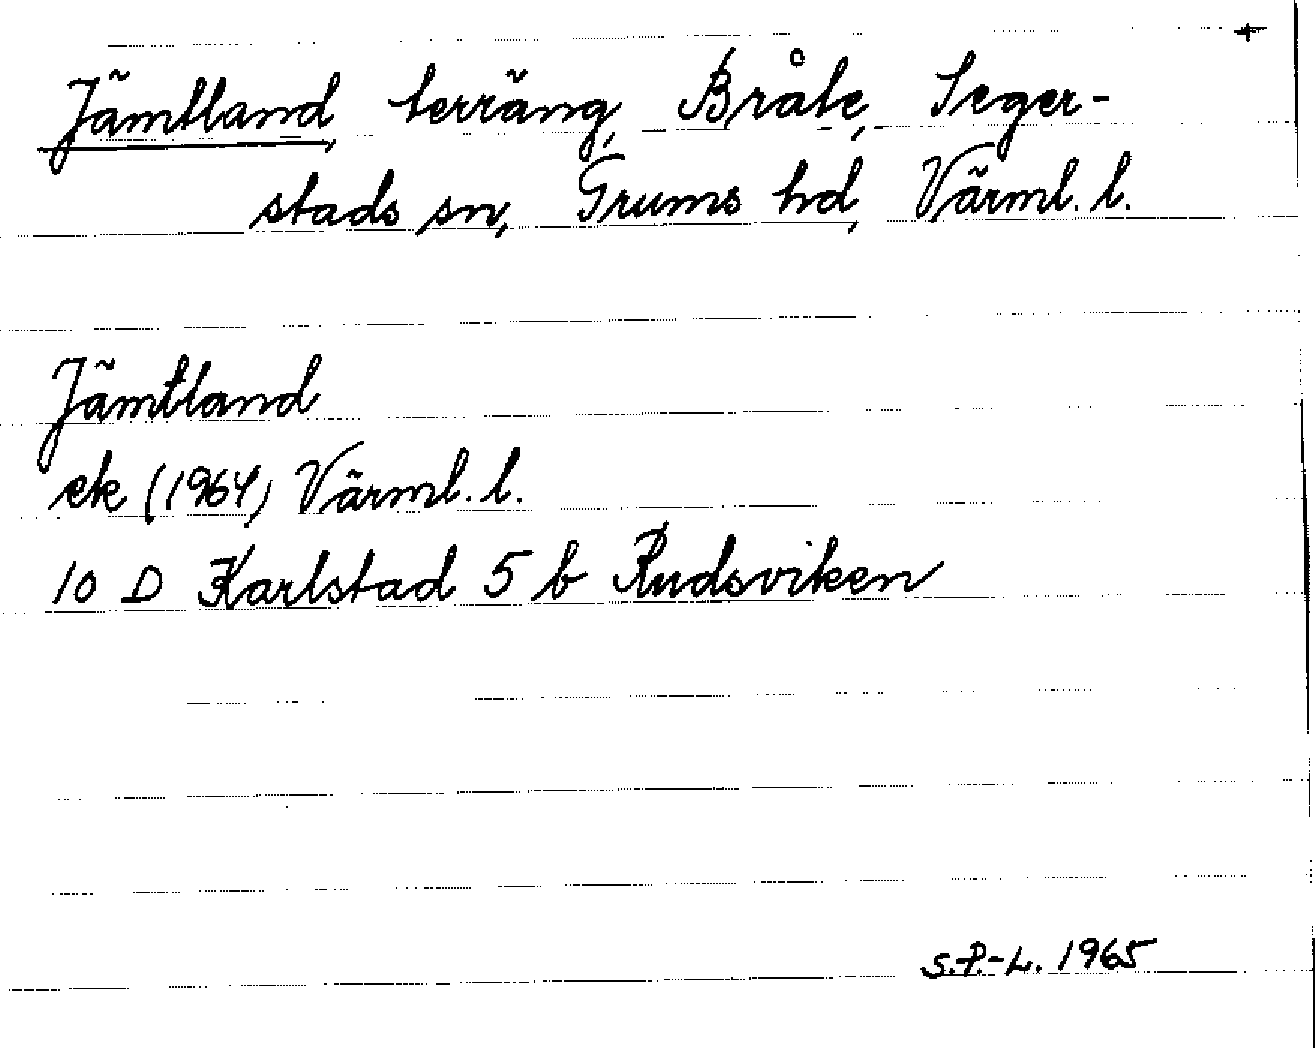 +
Jämtland, terräng, Bråte, Seger-
stads sn, Grums hd, Värml. l.
Jämtland
ek (1964) Värml. l.
10 D Karlstad 5 b Rudsviken
S.P.-L. 1965